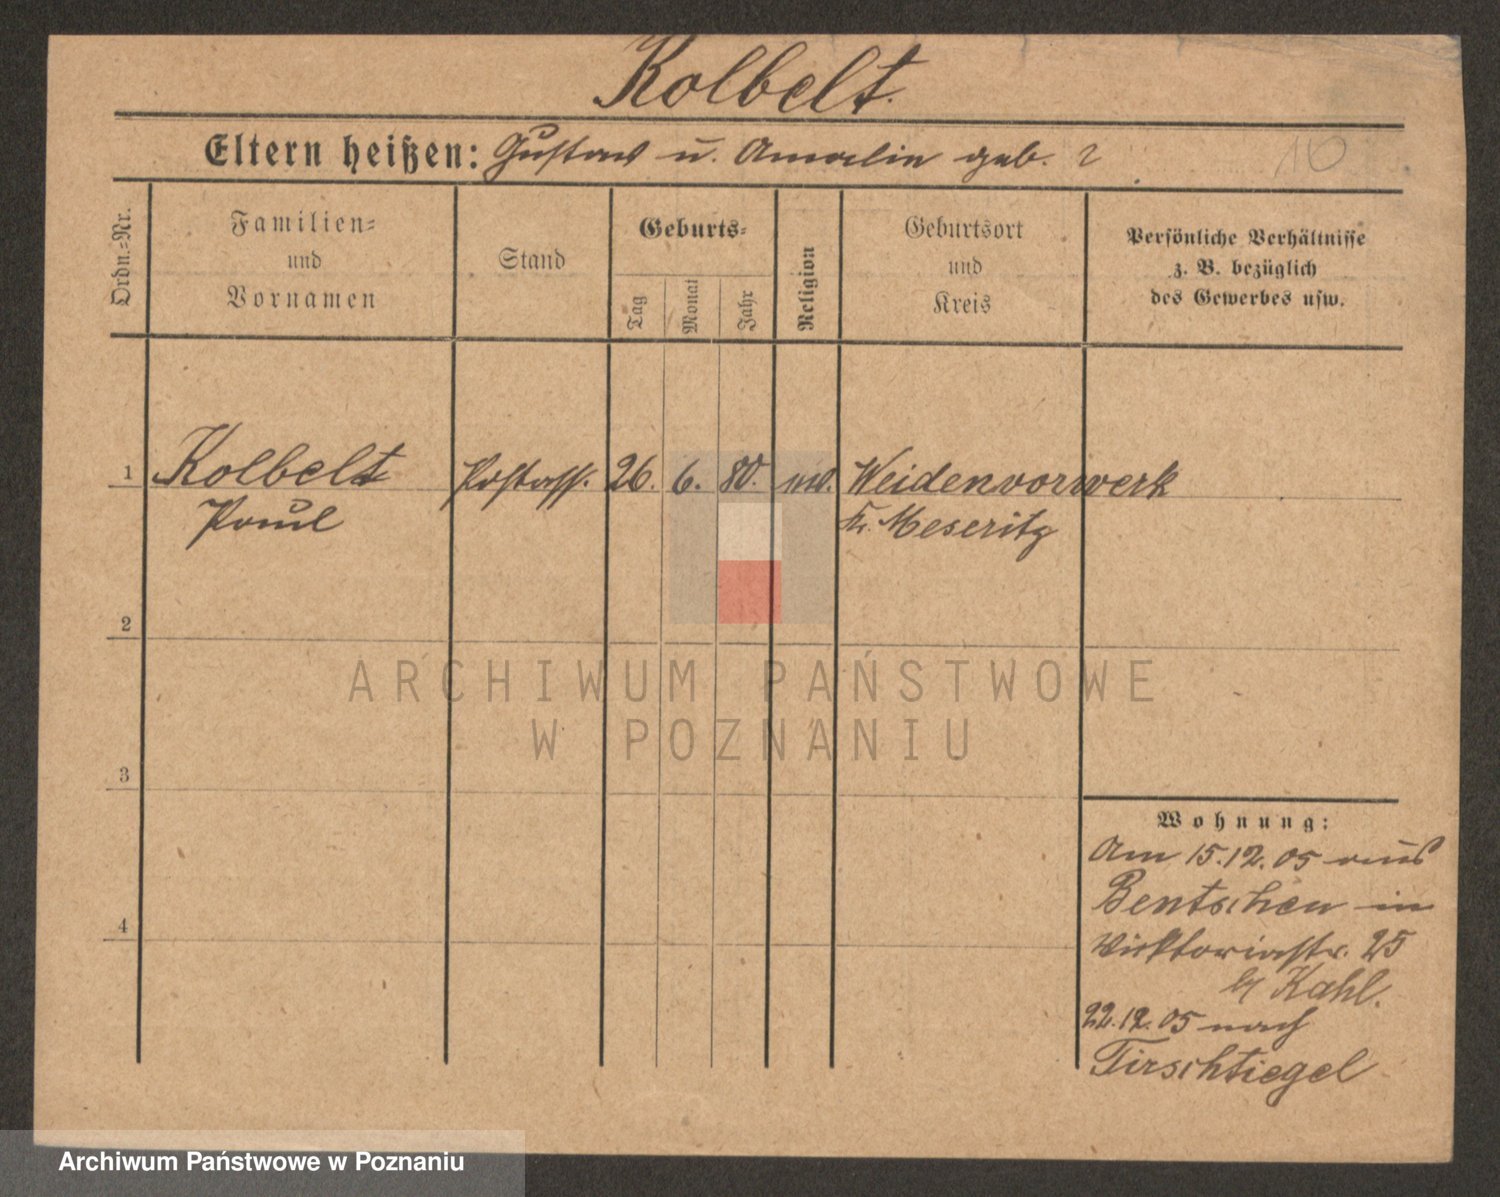 Kolbelt.
Eltern heißen: Gustav u. Amalie geb. ?
10
Ordn.-Nr.
Familien-
und
Vornamen
Stand
Geburts-
Tag
Monat
Jahr
Religion
Geburtsort
und
Kreis
Persönliche Verhältnisse
z. B. bezüglich
des Gewerbes usw.
1 Kolbelt Postass. 26. 6. 80. ev. Weidenvorwerk
Paul Kr. Meseritz
2
ARCHIWUM PAŃSTWOWE
W POZNANIU
3
Wohnung:
Am 15.12.05 aus
Bentschen in
Viktoriastr. 25
b/ Kahl.
4
22.12.05 nach
Tirschtiegel
Archiwum Państwowe w Poznaniu